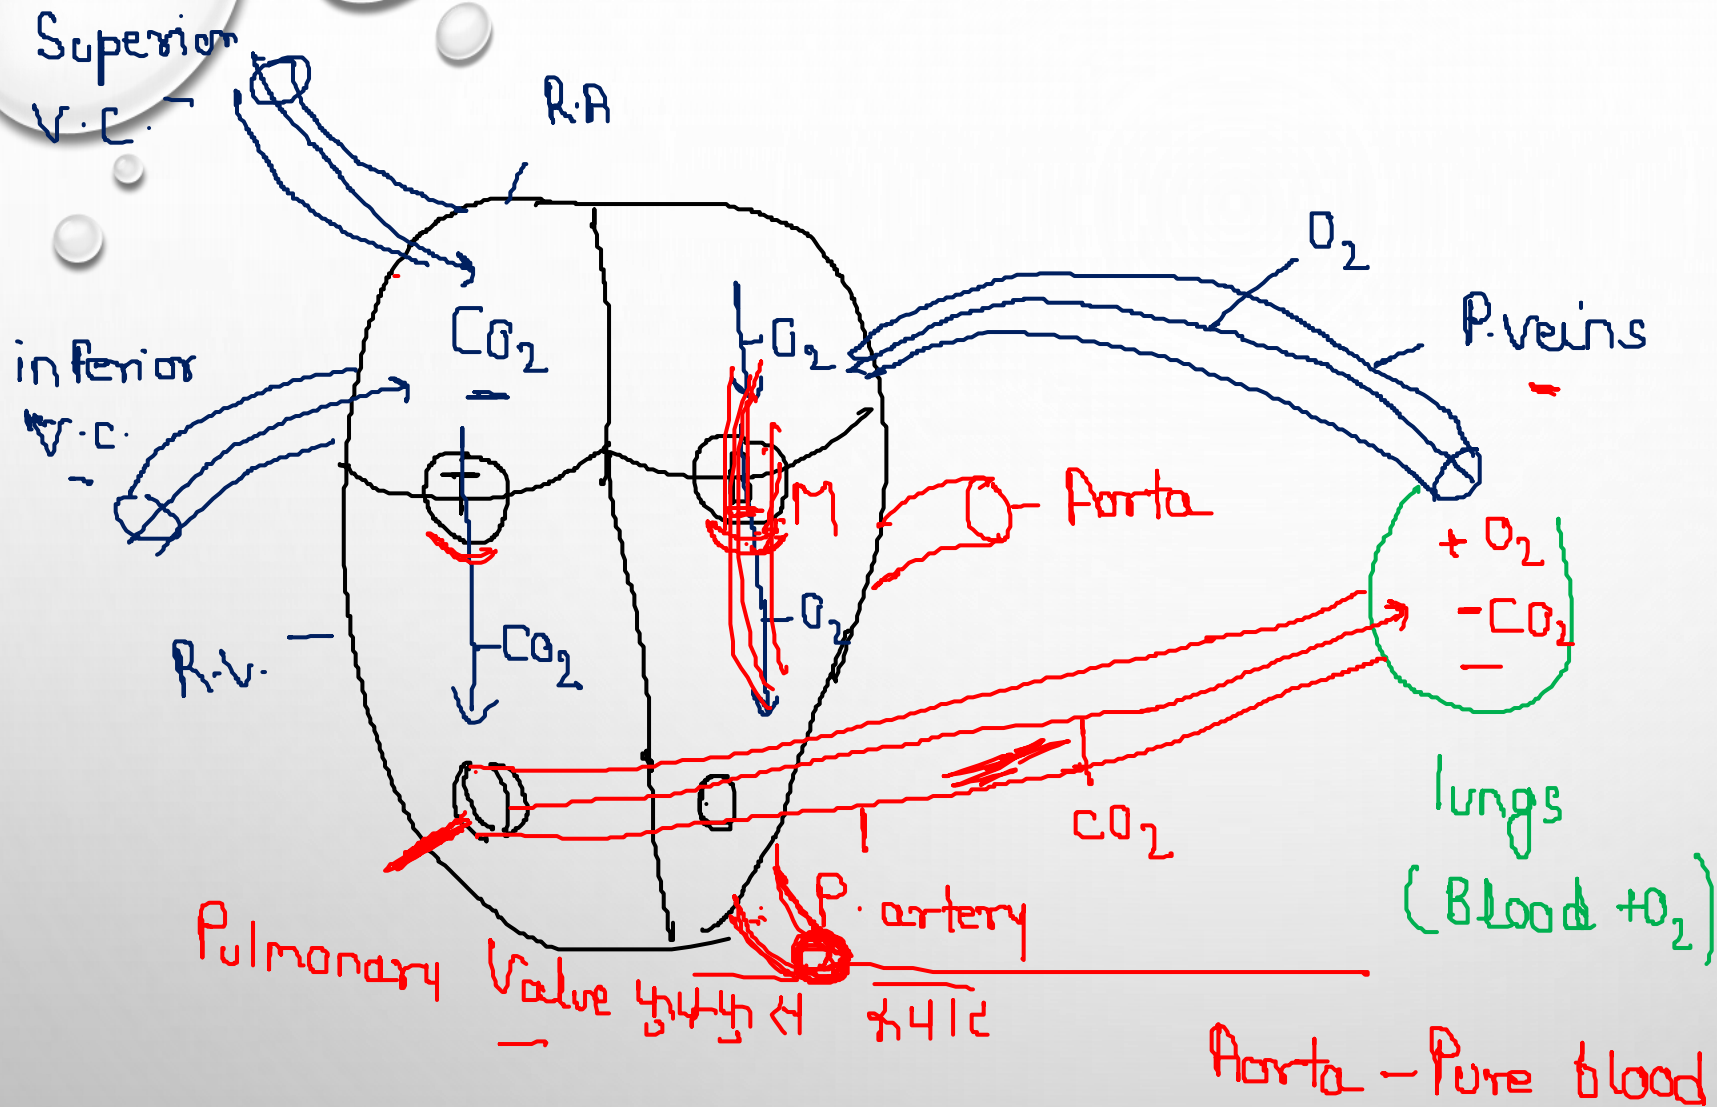 Superior
V.C.
R.A
O2
P.veins
CO2
O2
inferior
V.C.
T
M
Aorta
+ O2
- CO2
O2
CO2
R.V.
CO2
lungs
(Blood +O2)
P. artery
Pulmonary Valve
Aorta - Pure blood